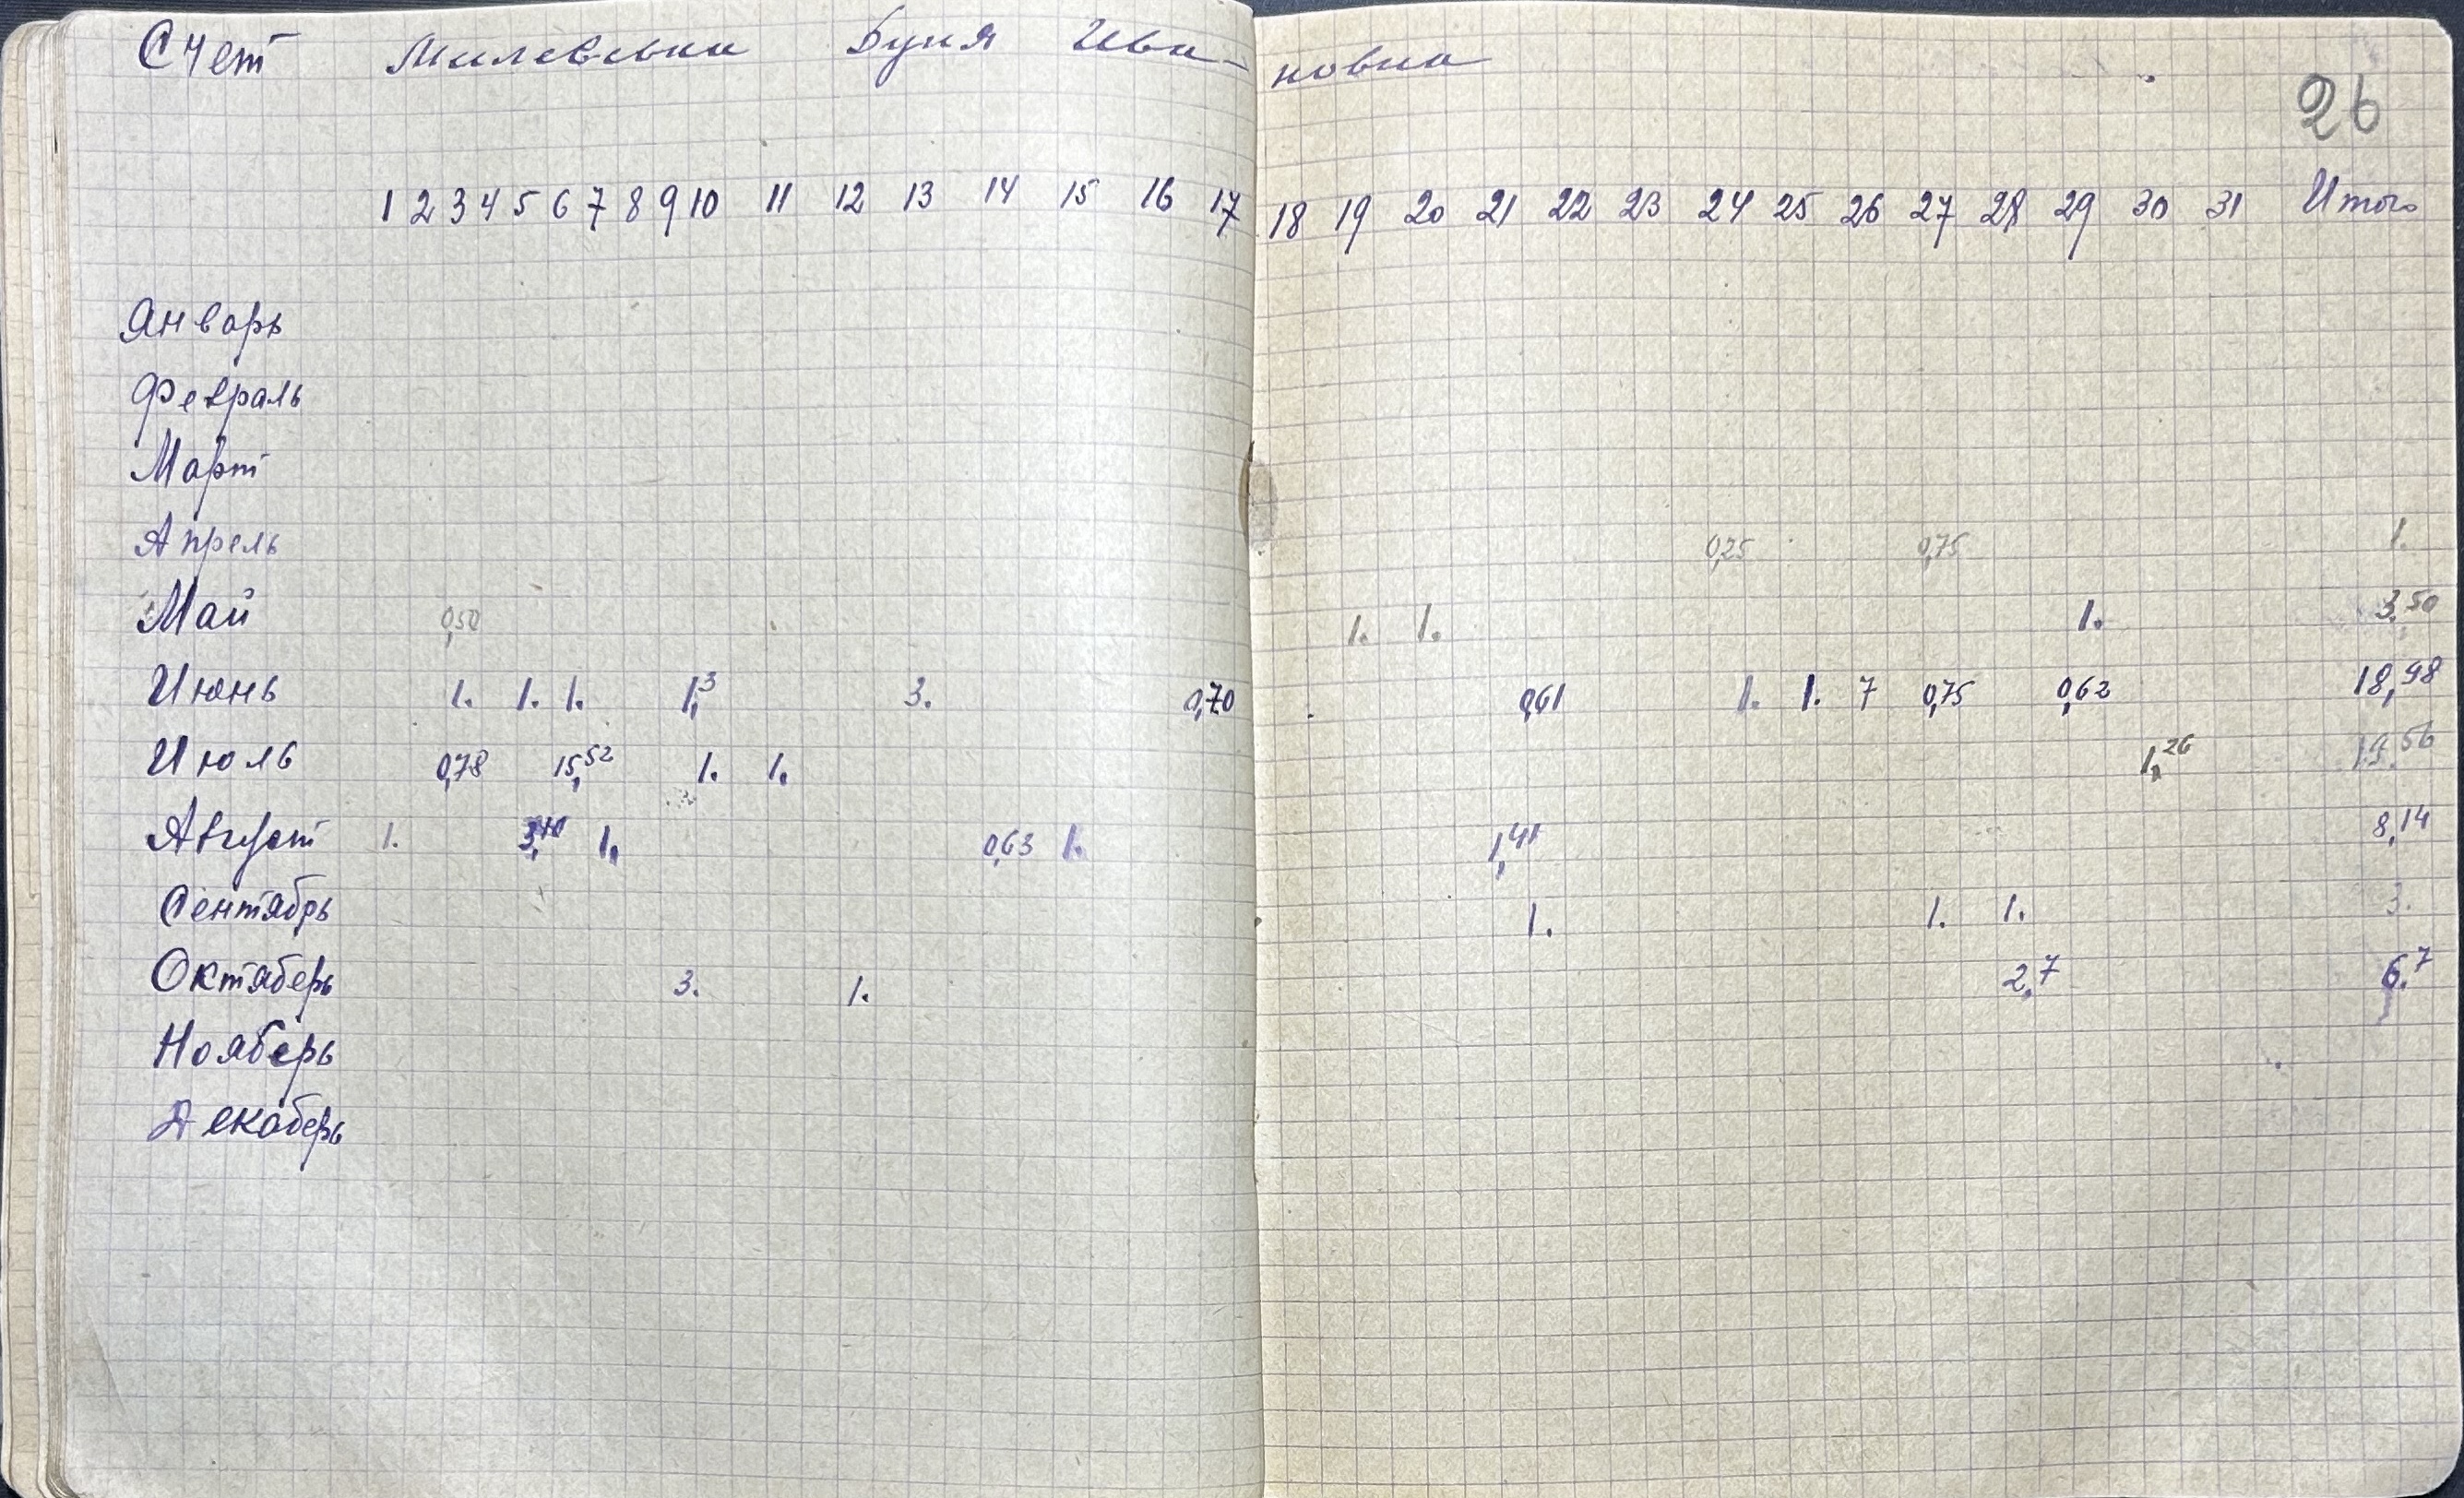 Счет Милевська Буня Ива-новна
26
1 2 3 4 5 6 7 8 9 10 11 12 13 14 15 16 17 18 19 20 21 22 23 24 25 26 27 28 29 30 31 Итого
Январь
Февраль
Март
Апрель 0,25 0,75 1.
Май 0,50 1. 1. 1. 3,50
Июнь 1. 1. 1. 1,3 3. 0,70 0,61 1. 1. 7 0,75 0,62 18,98
Июль 0,78 15,52 1. 1. 1,26 19,56
Август 1. 3,10 1. 0,63 1. 1,41 8,14
Сентябрь 1. 1. 1. 3.
Октяберь 3. 1. 2,7 6.7
Нояберь
Декаберь